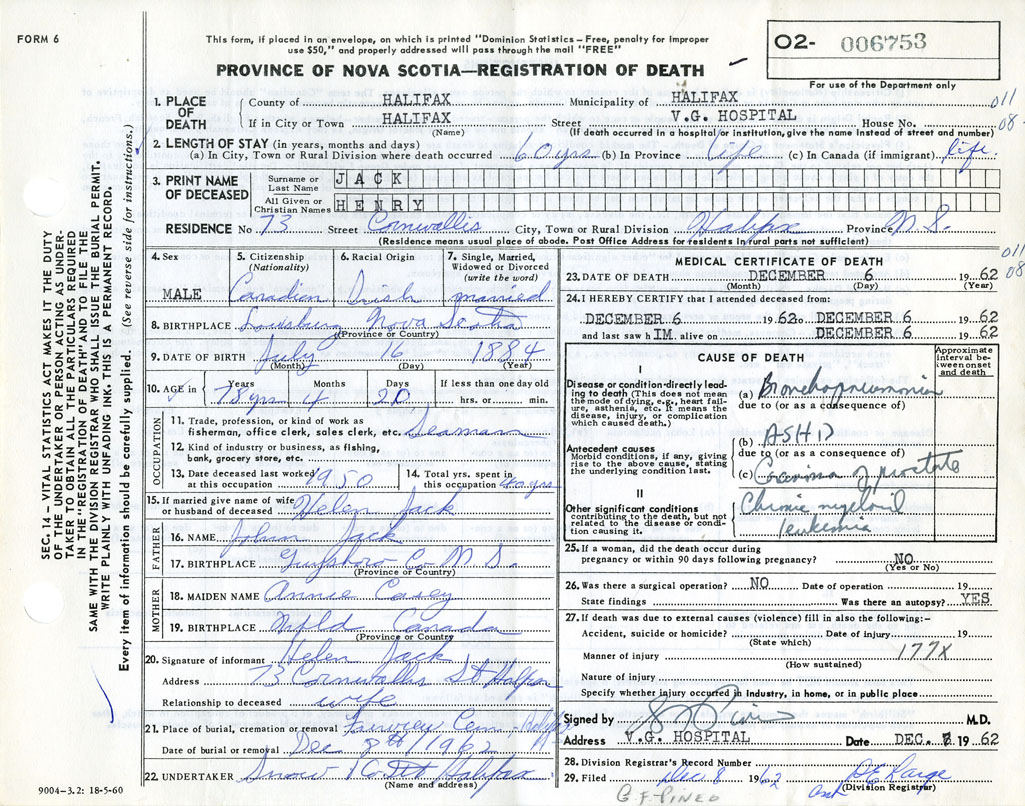 FORM 6
This form, if placed in an envelope, on which is printed "Dominion Statistics – Free, penalty for improper
use $50," and properly addressed will pass through the mail "FREE"
PROVINCE OF NOVA SCOTIA—REGISTRATION OF DEATH
02- 006753
For use of the Department only
011
08
1. PLACE OF DEATH
County of HALIFAX Municipality of HALIFAX
If in City or Town HALIFAX Street V.G. HOSPITAL House No.
(Name) (If death occurred in a hospital or institution, give the name instead of street and number)
2. LENGTH OF STAY (in years, months and days)
(a) In City, Town or Rural Division where death occurred 60 yrs (b) In Province life (c) In Canada (if immigrant) life
3. PRINT NAME OF DECEASED
Surname or Last Name JACK
All Given or Christian Names HENRY
RESIDENCE No. 73 Street Cornwallis City, Town or Rural Division Halifax Province N.S.
(Residence means usual place of abode. Post Office Address for residents in rural parts not sufficient)
4. Sex MALE
5. Citizenship (Nationality) Canadian
6. Racial Origin Irish
7. Single, Married, Widowed or Divorced (write the word) married
8. BIRTHPLACE Louisburg Nova Scotia
(Province or Country)
9. DATE OF BIRTH July 16 1884
(Month) (Day) (Year)
10. AGE in Years Months Days If less than one day old
78 yrs 4 20 hrs. or min.
OCCUPATION
11. Trade, profession, or kind of work as
fisherman, office clerk, sales clerk, etc. Seaman
12. Kind of industry or business, as fishing,
bank, grocery store, etc.
13. Date deceased last worked at this occupation 1950
14. Total yrs. spent in this occupation 40 yrs
15. If married give name of wife or husband of deceased Helen Jack
FATHER
16. NAME John Jack
17. BIRTHPLACE Guysboro Co N.S.
(Province or Country)
MOTHER
18. MAIDEN NAME Annie Casey
19. BIRTHPLACE Nfld Canada
(Province or Country)
20. Signature of informant Helen Jack
Address 73 Cornwallis St Halifax
Relationship to deceased wife
21. Place of burial, cremation or removal Fairview Cem, Halifax
Date of burial or removal Dec 8th/1962
22. UNDERTAKER Snow + Co Ltd Halifax
(Name and address)
MEDICAL CERTIFICATE OF DEATH
011
08
23. DATE OF DEATH DECEMBER 6 1962
(Month) (Day) (Year)
24. I HEREBY CERTIFY that I attended deceased from:
DECEMBER 6 1962 to DECEMBER 6 1962
and last saw h IM. alive on DECEMBER 6 1962
CAUSE OF DEATH
Approximate interval between onset and death
I
Disease or condition directly leading to death (This does not mean the mode of dying, e.g., heart failure, asthenia, etc. It means the disease, injury, or complication which caused death.)
(a) Bronchopneumonia
due to (or as a consequence of)
Antecedent causes
Morbid conditions, if any, giving rise to the above cause, stating the underlying condition last.
(b) ASHD
due to (or as a consequence of)
(c) Carcinoma of prostate
II
Other significant conditions contributing to the death, but not related to the disease or condition causing it.
Chronic myeloid
leukemia
25. If a woman, did the death occur during
pregnancy or within 90 days following pregnancy? NO
(Yes or No)
26. Was there a surgical operation? NO Date of operation 19
State findings Was there an autopsy? YES
27. If death was due to external causes (violence) fill in also the following:-
Accident, suicide or homicide? Date of injury 19
(State which)
Manner of injury 177X
(How sustained)
Nature of injury
Specify whether injury occurred in industry, in home, or in public place
Signed by M.D.
Address V.G. HOSPITAL Date DEC. 7 1962
28. Division Registrar's Record Number
29. Filed Dec 8 1962
(Division Registrar)
G.F. PINEO
9004–3.2: 18-5-60
SEC. 14 – VITAL STATISTICS ACT MAKES IT THE DUTY
OF THE UNDERTAKER OR PERSON ACTING AS UNDER-
TAKER TO OBTAIN ALL THE PARTICULARS REQUIRED
IN THE "REGISTRATION OF DEATH" AND TO FILE THE
SAME WITH THE DIVISION REGISTRAR WHO SHALL ISSUE THE BURIAL PERMIT.
WRITE PLAINLY WITH UNFADING INK. THIS IS A PERMANENT RECORD.
Every item of information should be carefully supplied. (See reverse side for instructions.)